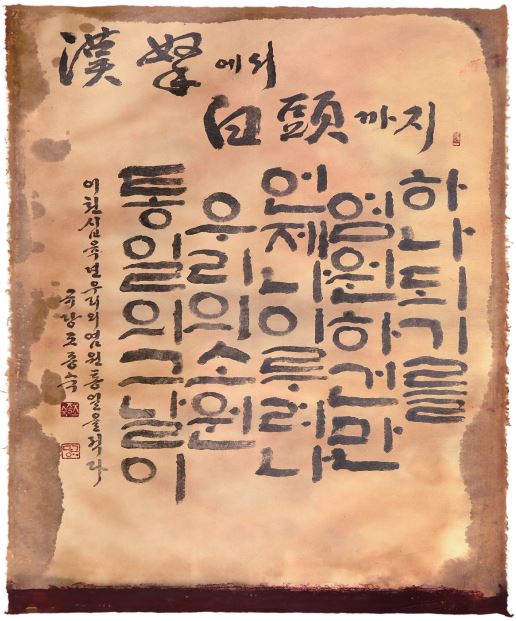 漢拏에서
白頭까지
하나되기를
염원하건만
언제나이루려나
우리의소원
통일의그날이
이천십육년우리의염원통일을적다